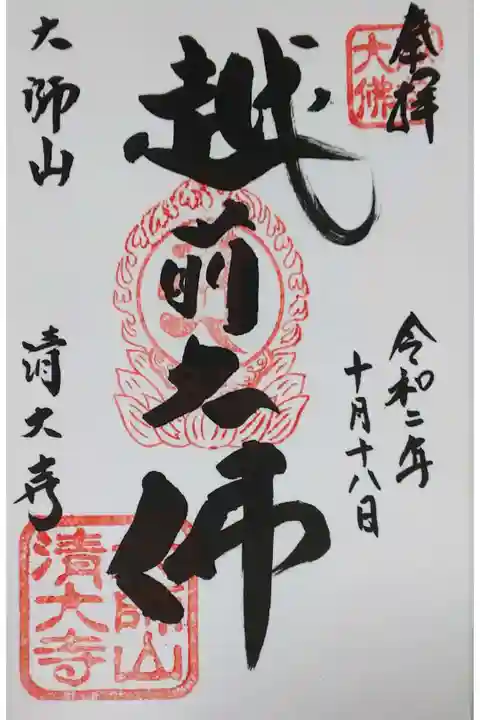 奉拝
大佛
令和二年
十月十八日
越前大佛
大師山
清大寺
大師山
清大寺